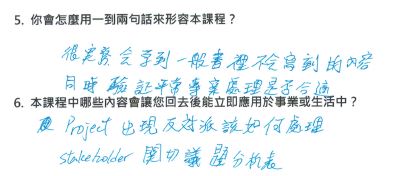 5. 你會怎麼用一到兩句話來形容本課程？
很實務會學到一般書裡不會寫到的內容
同時驗証平常專案處理是否合適
6. 本課程中哪些內容會讓您回去後能立即應用於事業或生活中？
Project 出現反對派該如何處理
stakeholder 關切議題分析表